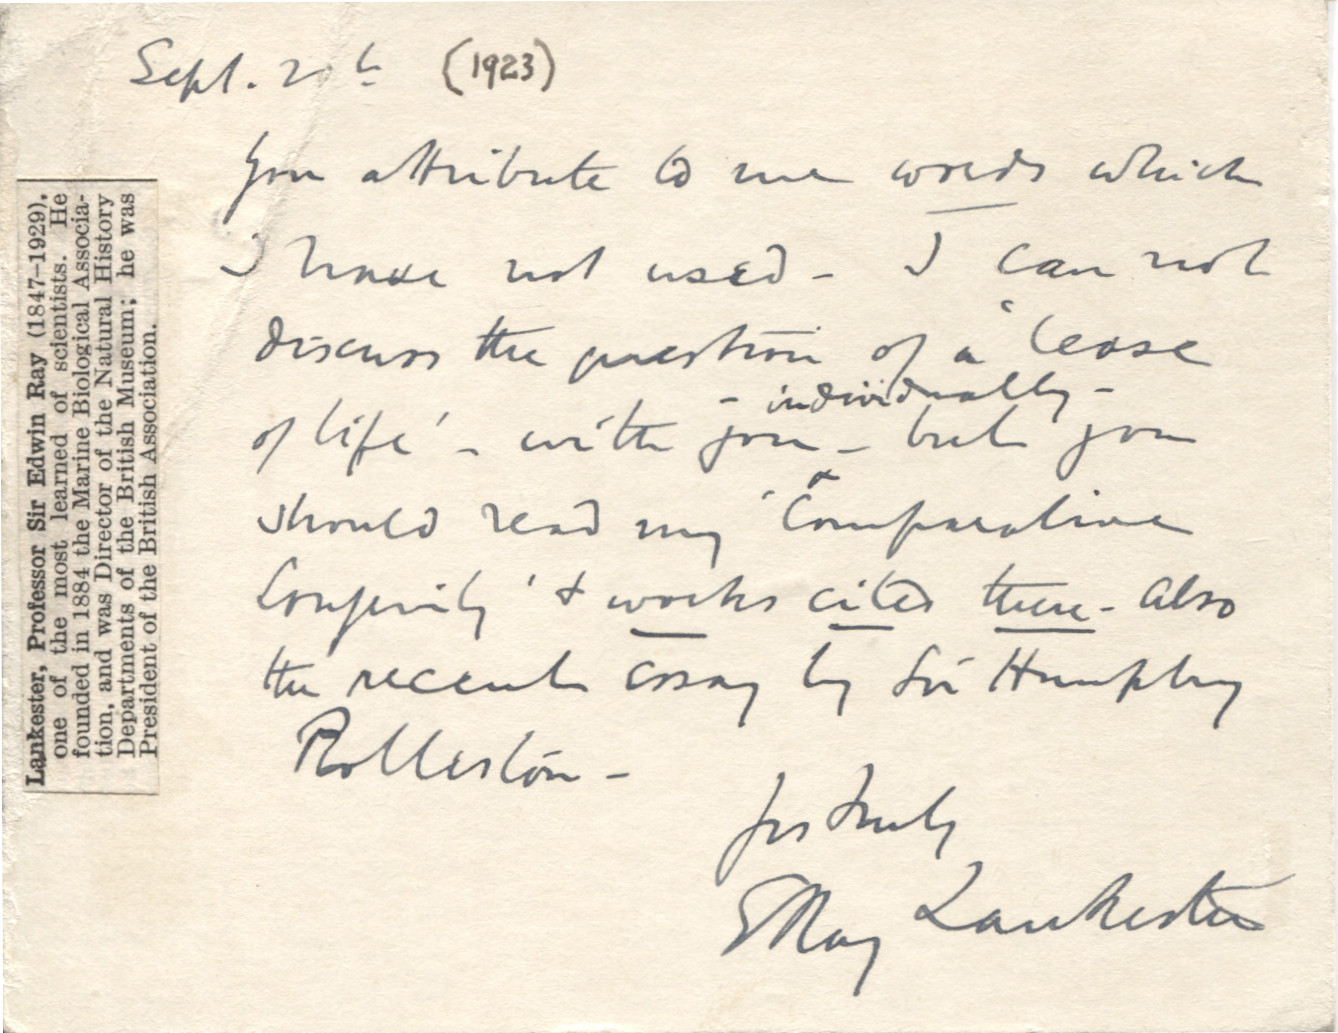 Sept. (1923)
You attribute to me words which
I have not used - I can not
discuss the question of a 'lease
of life' - with you - individually - but you
should read my 'Comparative
Longevity' & works cited there - also
the recent essay by Sir Humphry
Rolleston -
yrs truly
E Ray Lankester
Lankester, Professor Sir Edwin Ray (1847-1929),
one of the most learned of scientists. He
founded in 1884 the Marine Biological Associa-
tion, and was Director of the Natural History
Departments of the British Museum; he was
President of the British Association.